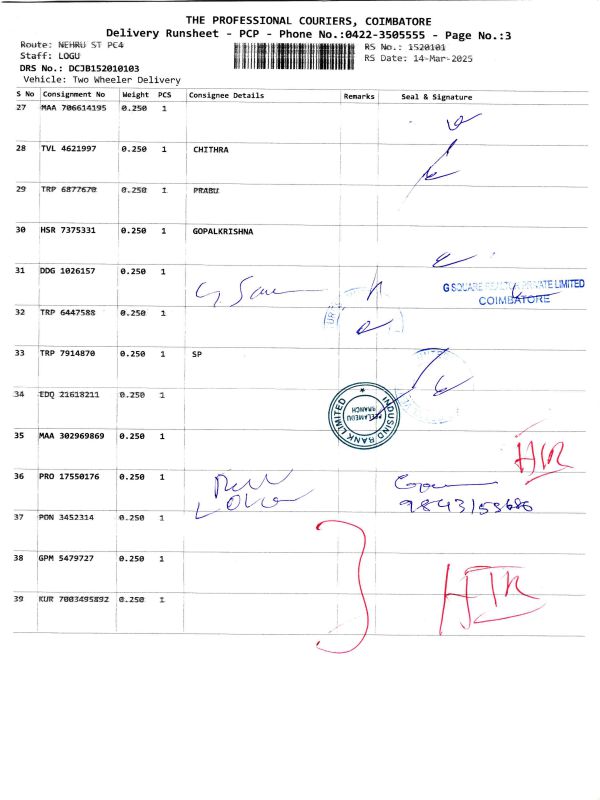 THE PROFESSIONAL COURIERS, COIMBATORE
Delivery Runsheet - PCP - Phone No.:0422-3505555 - Page No.:3
Route: NEHRU ST PC4
RS No.: 1520101
Staff: LOGU
RS Date: 14-Mar-2025
DRS No.: DCJB152010103
Vehicle: Two Wheeler Delivery
S No Consignment No Weight PCS Consignee Details Remarks Seal & Signature
27 MAA 706614195 0.250 1
28 TVL 4621997 0.250 1 CHITHRA
29 TRP 6877670 0.250 1 PRABU
30 HSR 7375331 0.250 1 GOPALKRISHNA
31 DDG 1026157 0.250 1
G SQUARE REALTORS PRIVATE LIMITED
COIMBATORE
32 TRP 6447588 0.250 1
33 TRP 7914870 0.250 1 SP
34 EDQ 21618211 0.250 1
INDUSIND BANK LIMITED
PEELAMEDU
BRANCH
35 MAA 302969869 0.250 1
36 PRO 17550176 0.250 1
37 PON 3452314 0.250 1
38 GPM 5479727 0.250 1
39 KUR 7003495892 0.250 1